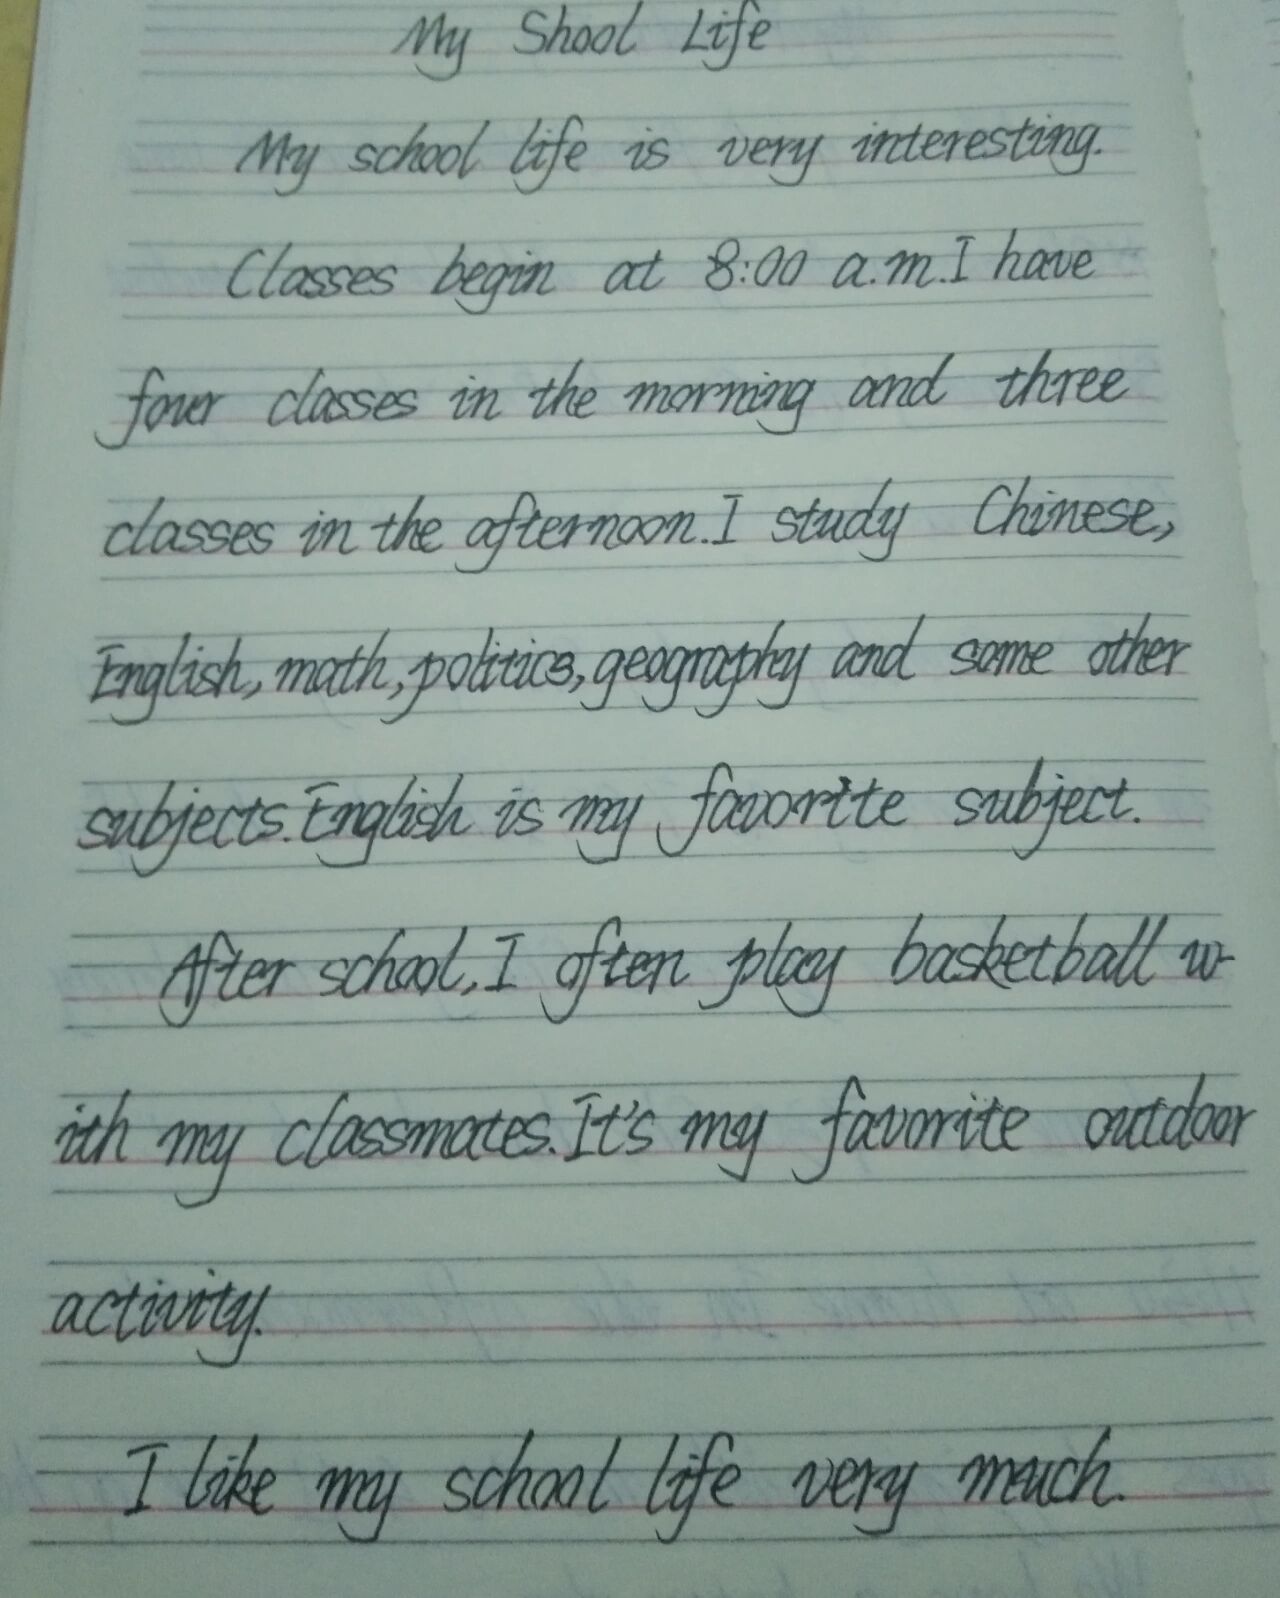 My Shool Life
My school life is very interesting.
Classes begin at 8:00 a.m.I have
four classes in the morning and three
classes in the afternoon.I study Chinese,
English, math, politics, geography and some other
subjects.English is my favorite subject.
After school, I often play basketball w-
ith my classmates.It's my favorite outdoor
activity.
I like my school life very much.